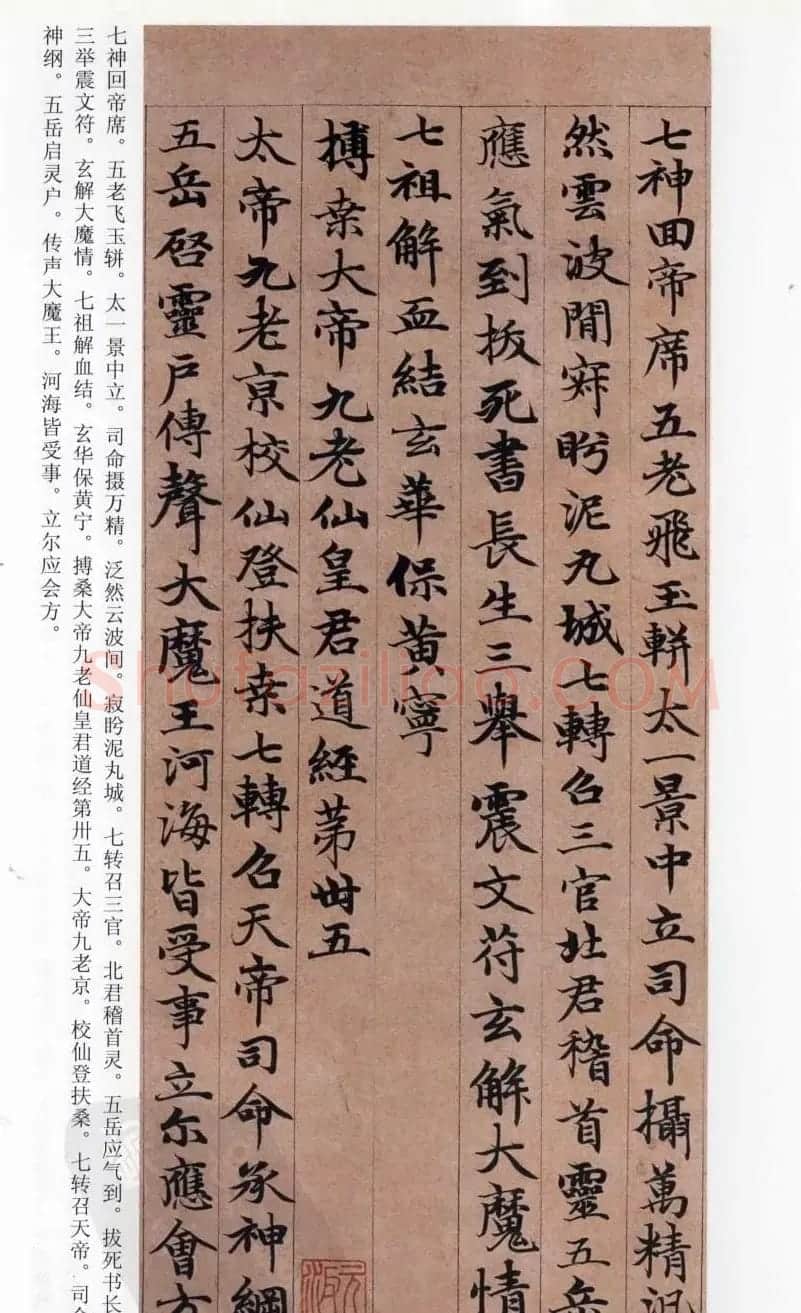 七神回帝席五老飛玉輧太一景中立司命攝萬精泛
然雲波間寂眄泥丸城七轉召三官北君稽首靈五岳
應氣到拔死書長生三舉震文符玄解大魔情
七祖解血結玄華保黃寧
搏桒大帝九老仙皇君道經第卅五
太帝九老京校仙登扶桒七轉召天帝司命承神綱
五岳启靈户傳聲大魔王河海皆受事立尔應會方
七神回帝席。五老飞玉𫐌。太一景中立。司命摄万精。泛然云波间。寂眄泥丸城。七转召三官。北君稽首灵。五岳应气到。拔死书长
三举震文符。玄解大魔情。七祖解血结。玄华保黄宁。搏桑大帝九老仙皇君道经第卅五。大帝九老京。校仙登扶桑。七转召天帝。司命
神纲。五岳启灵户。传声大魔王。河海皆受事。立尔应会方。
Shufaziliao.com